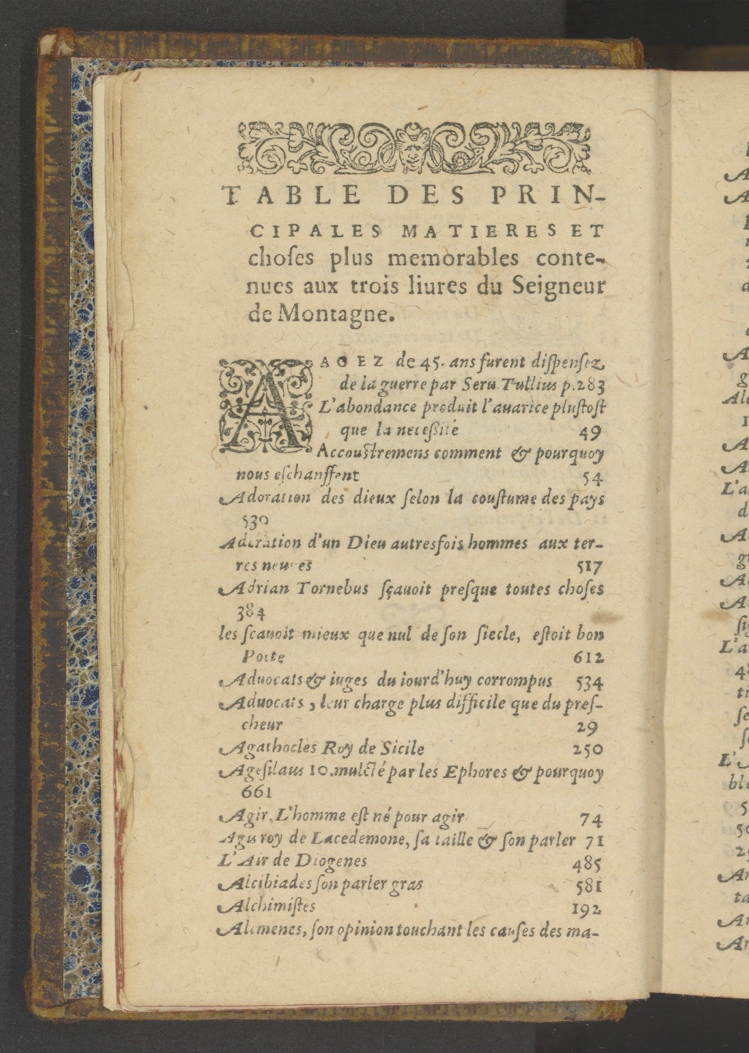 TABLE DES PRIN-
CIPALES MATIERES ET
choſes plus memorables conte-
nues aux trois liures du Seigneur
de Montagne.
AAGEZ de 45. ans furent diſpenſez
de la guerre par Seru. Tullius p.283
L'abondance produit l'auarice pluſtoſt
que la neceßité 49
Accouſtremens comment & pourquoy
nous eſchauffent 54
Adoration des dieux ſelon la couſtume des pays
530
Adoration d'un Dieu autresfois hommes aux ter-
res neuues 517
Adrian Tornebus ſçauoit preſque toutes choſes
384
les ſcauoit mieux que nul de ſon ſiecle, eſtoit bon
Poete 612
Aduocats & iuges du iourd'huy corrompus 534
Aduocats, leur charge plus difficile que du preſ-
cheur 29
Agathocles Roy de Sicile 250
Ageſilaus 10. mulcté par les Ephores & pourquoy
661
Agir, L'homme eſt né pour agir 74
Agis roy de Lacedemone, ſa taille & ſon parler 71
L'Air de Diogenes 485
Alcibiades ſon parler gras 581
Alchimiſtes 192
Alcmenes, ſon opinion touchant les cauſes des ma-